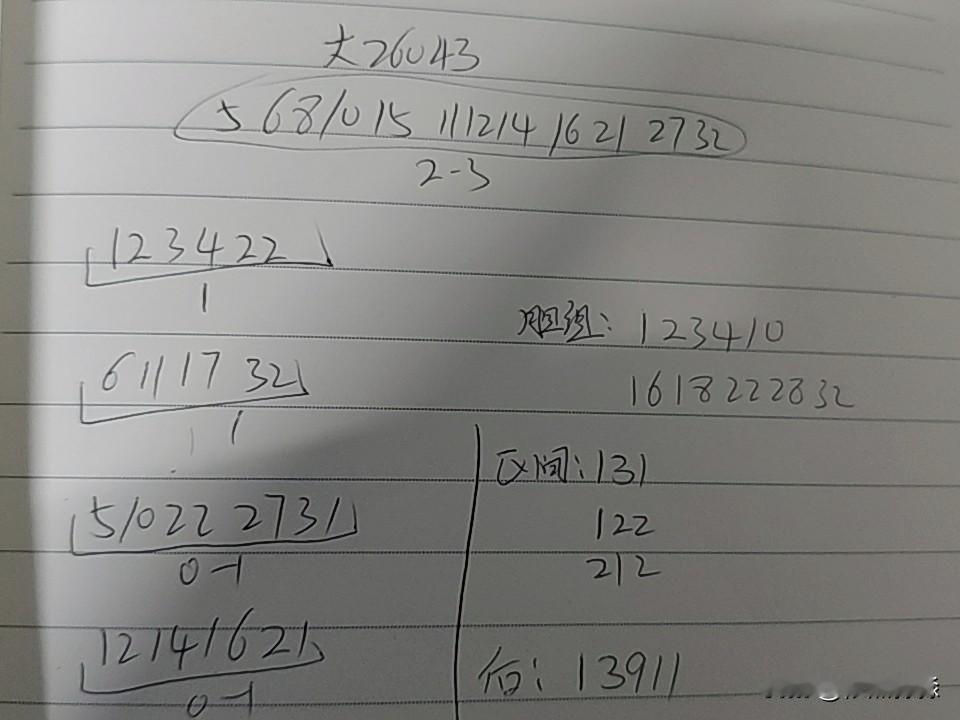 大26043
5 6 8 10 15 11 12 14 16 21 27 32
2-3
1 2 3 4 22
1
6 11 17 32
1
5 10 22 27 31
0-1
12 14 16 21
0-1
胆组: 1 2 3 4 10
16 18 22 28 32
区间: 131
122
212
后: 1 3 9 11